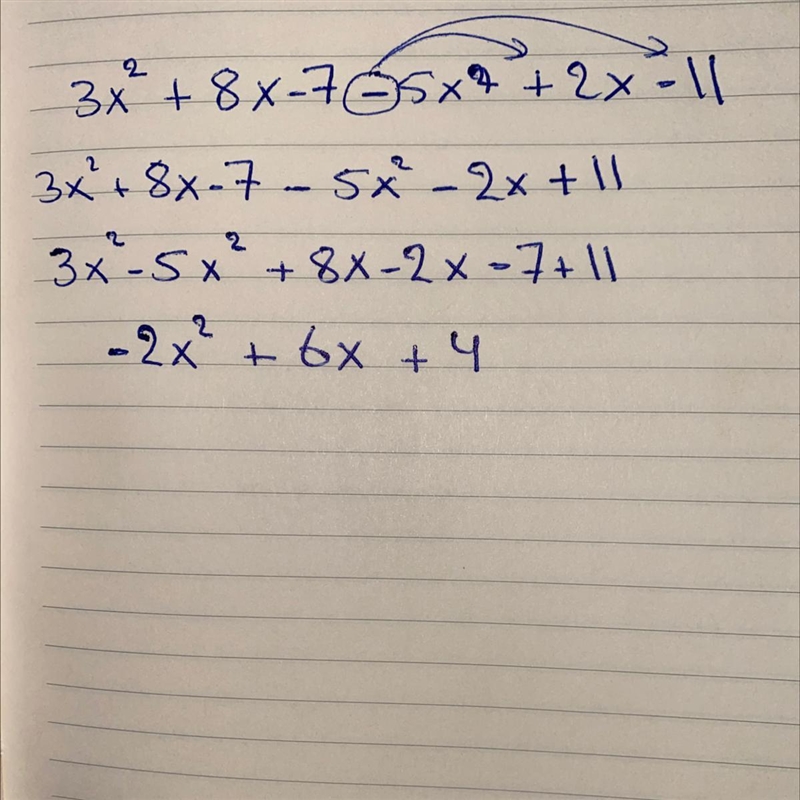 3x² + 8x - 7 - 5x² + 2x - 11
3x² + 8x - 7 - 5x² - 2x + 11
3x² - 5x² + 8x - 2x - 7 + 11
-2x² + 6x + 4